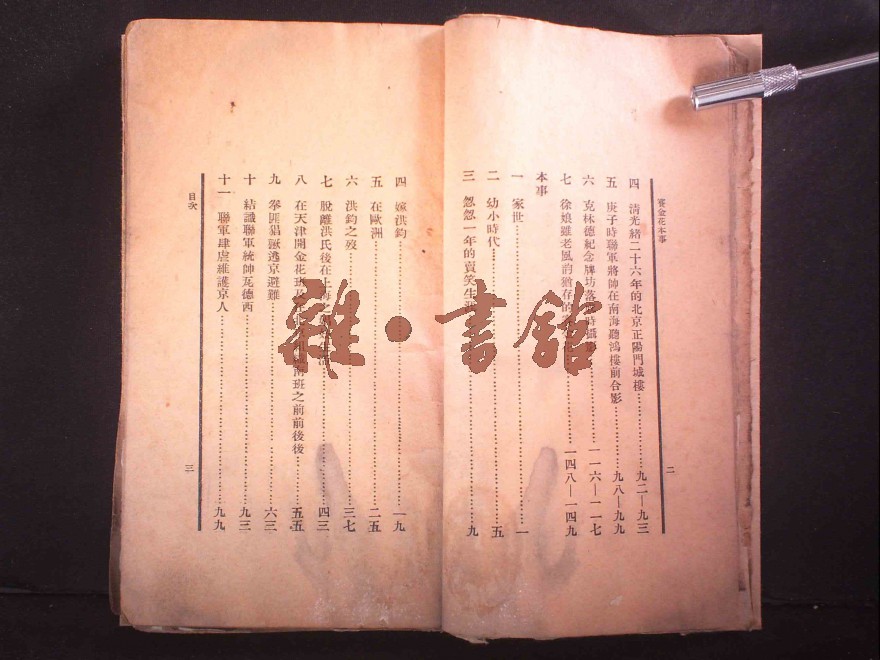 賽金花本事
四 清光緒二十六年的北京正陽門城樓……九二—九三
五 庚子時聯軍將帥在南海聽鴻樓前合影……九八—九九
六 克林德紀念牌坊落成時攝……一一六—一一七
七 徐娘雖老風韵猶存的……一四八—一四九
本事
一 家世……一
二 幼小時代……五
三 忽忽一年的賣笑生……九
二
四 嫁洪鈞……一九
五 在歐洲……二五
六 洪鈞之歿……三七
七 脫離洪氏後在上海……四三
八 在天津開金花班及……南班之前前後後……五五
九 拳匪猖獗逃京避難……六三
十 結識聯軍統帥瓦德西……九三
十一 聯軍肆虐維護京人……九九
目次
三
雜·書館